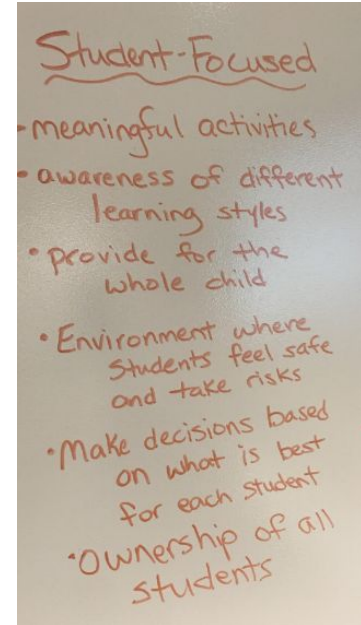 Student-Focused
-meaningful activities
• awareness of different
learning styles
• provide for the
whole child
• Environment where
students feel safe
and take risks
• Make decisions based
on what is best
for each student
• Ownership of all
students